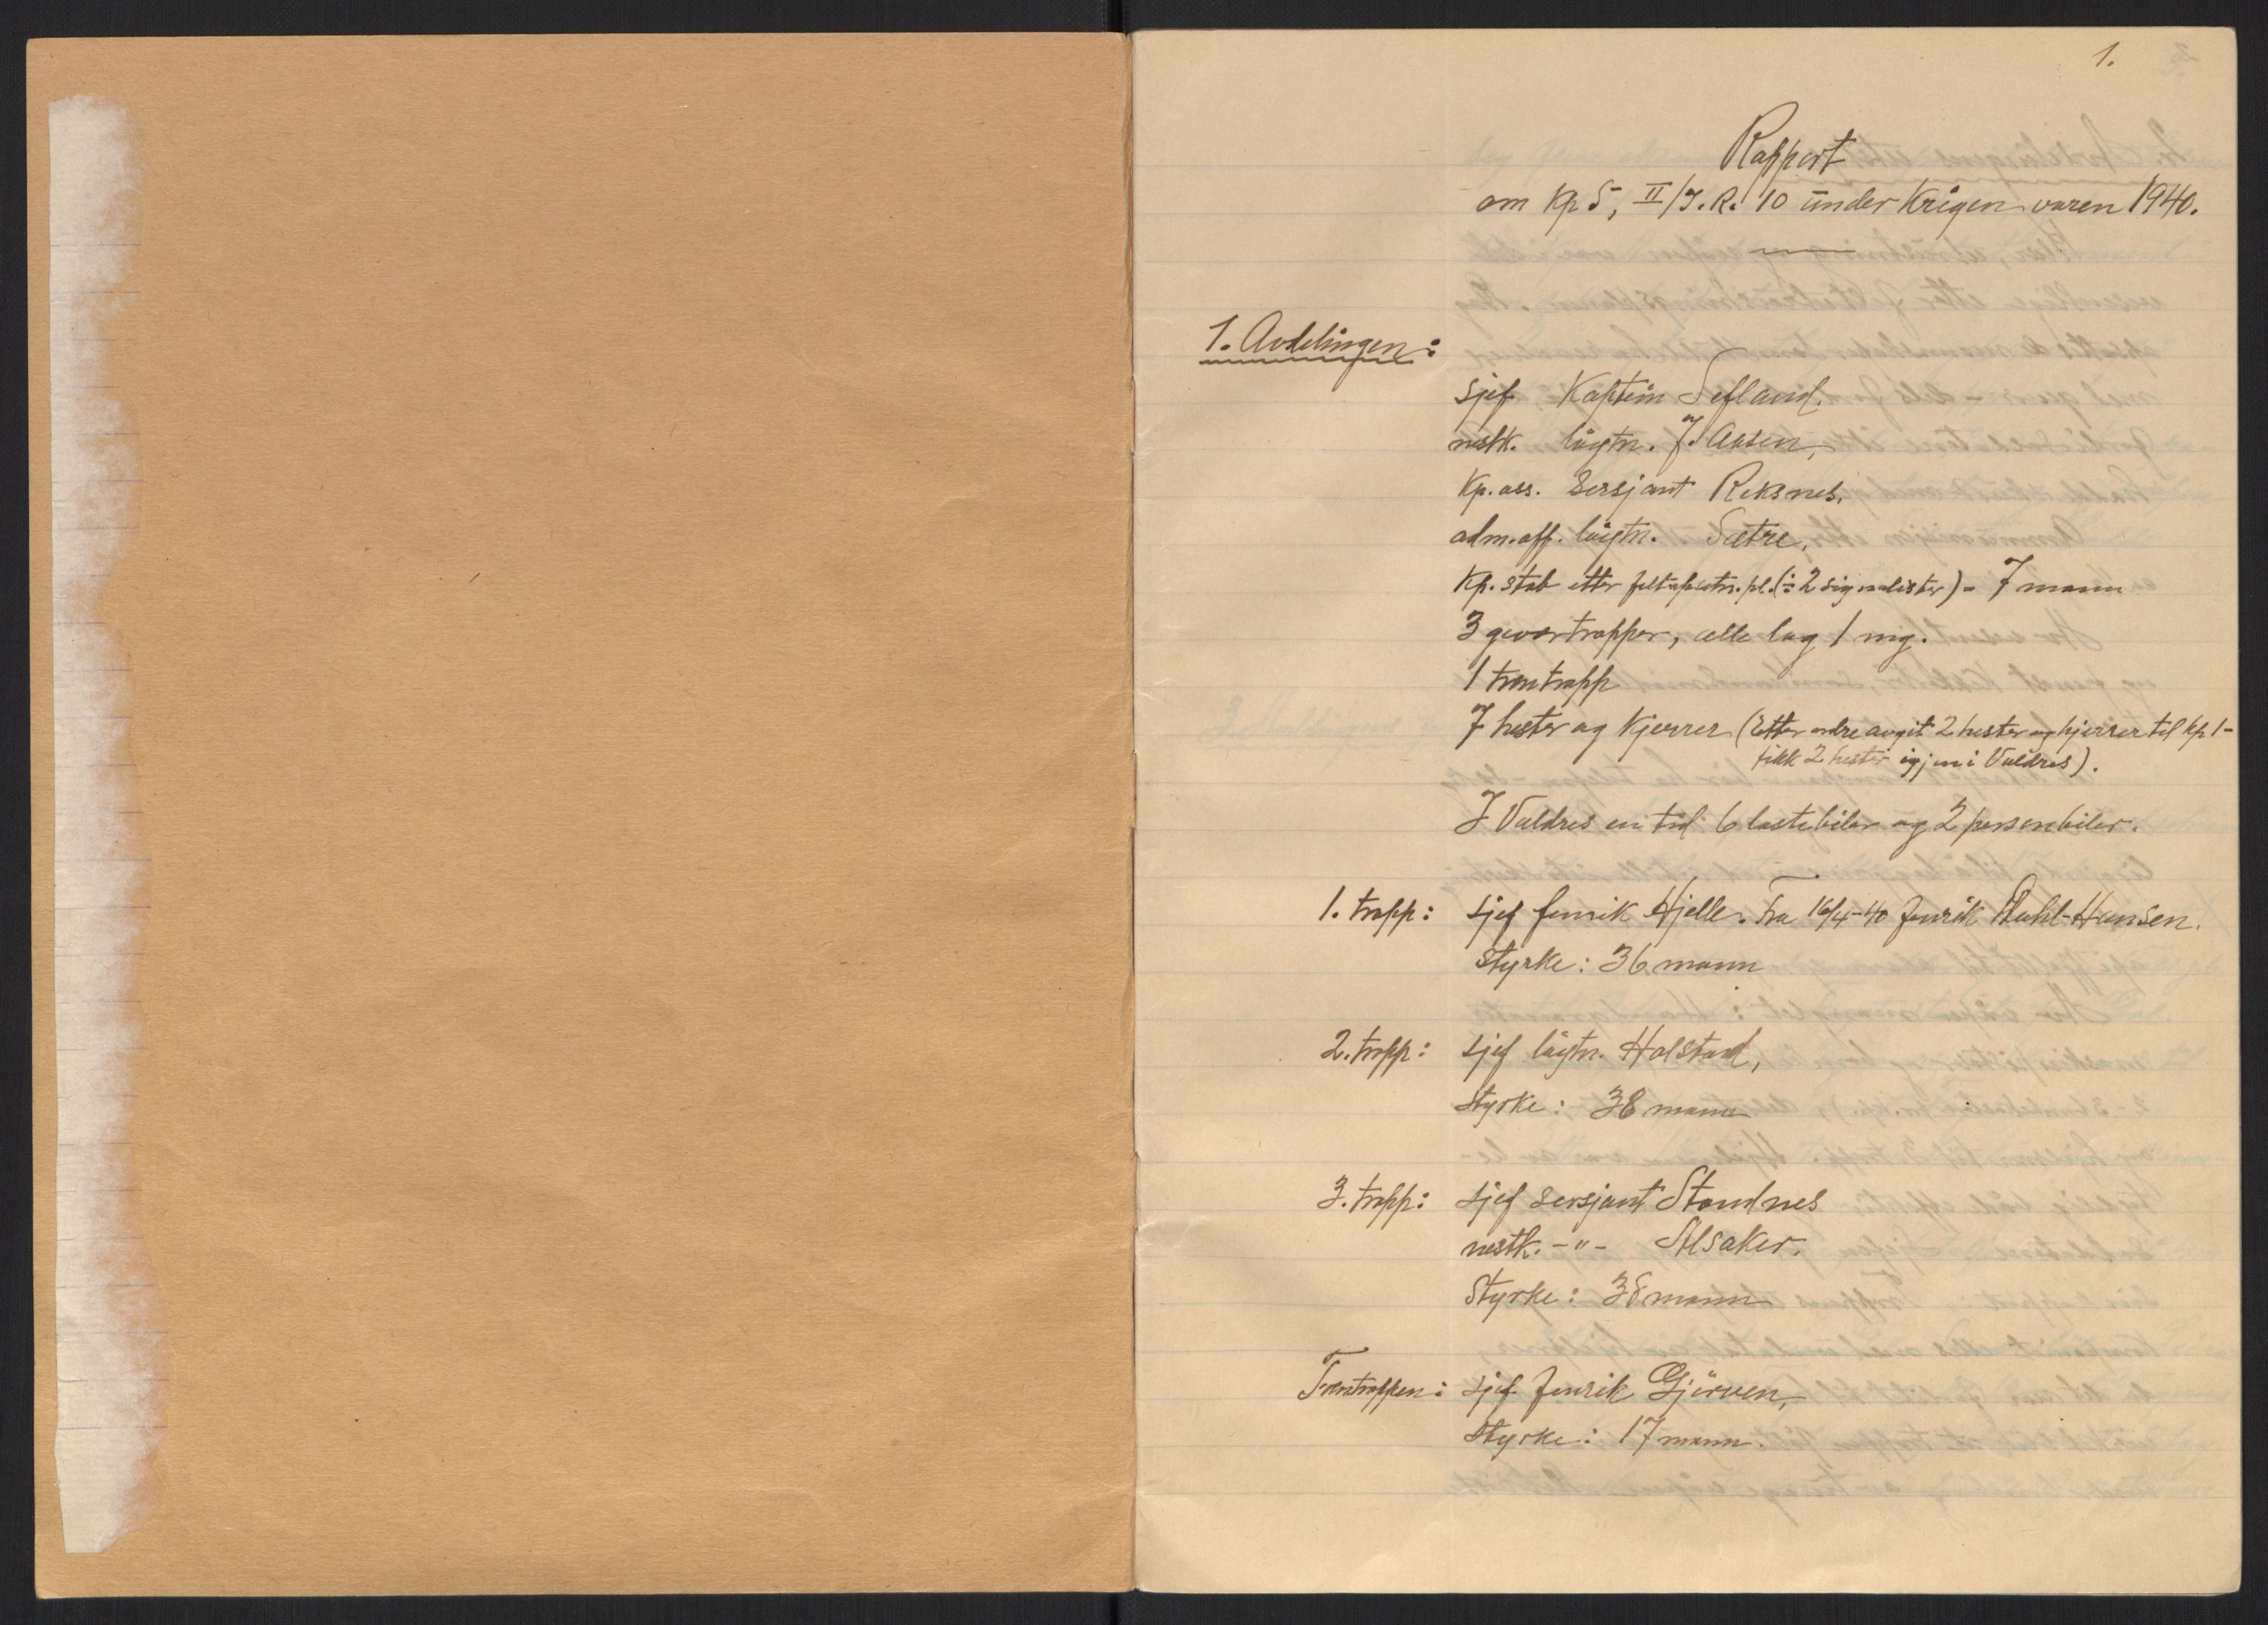 1.
Rapport
om Kp 5, II/I.R. 10 under Krigen våren 1940.
1. Avdelingen:
sjef Kaptein Sefland.
nestk. løytn. J. Aasen,
Kp. ass. Sersjant Reksnes.
adm. off. løytn. Sætre.
Kp. stab etter feltoppsetn. pl. (÷ 2 signalister) - 7 mann
3 geværtropper, alle lag 1 mg.
1 trentropp
7 hester og kjerrer (Etter ordre avgit 2 hester og kjerrer til kp 1 -
fikk 2 hester igjen i Valdres).
I Valdres en tid 6 lastebiler og 2 personbiler.
1. tropp: sjef fenrik Hjelle. Fra 16/4-40 fenrik Dahl-Hansen.
styrke: 36 mann
2. tropp: sjef løytn. Holstad,
styrke: 38 mann
3. tropp: sjef sersjant Standnes
nestk. -"- Alsaker.
Styrke: 38 mann
Trentroppen: sjef fenrik Gjörven,
styrke: 17 mann.